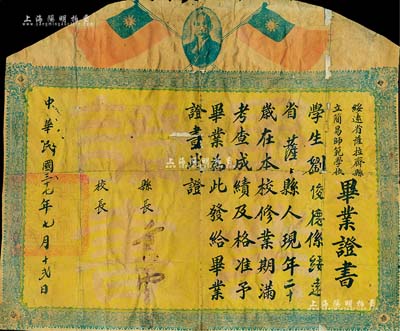 上海陽明拍賣
www.yangmingauction.com
綏遠省薩拉齊縣
立簡易師範學校
畢業證書
學生劉俊德係綏遠
省薩縣人現年二十
歲在本校修業期滿
考查成績及格准予
畢業為此發給畢業
證書此證
縣長
校長
中華民國三十九年七月十弍日